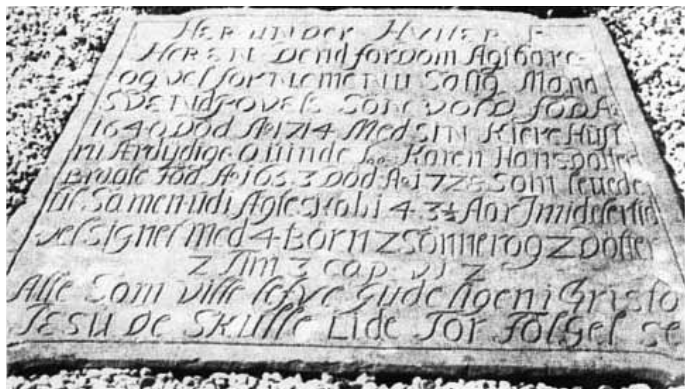 HERUNDER HVILER I
HEREN Dend fordom Agtbare
og velfornemenu Salig Mand
SVENDPOVELS Søn VORD FØD A°
1640 Død A° 1714 Med SIN Kiere Hust
ru Ærdydige Quinde Karen Hansdotter
Braale Fød A° 1653 Død A° 172 Som levede
til Samen udi Ægteskab i 43½ Aar Imidelertid
velsignet Med 4 Børn 2 Sønner og 2 Døtter
2 Tim 3 cap. v 12
Alle Som ville lefve Gudeligen i Christo
JESU De SKulle Lide For Følgelse